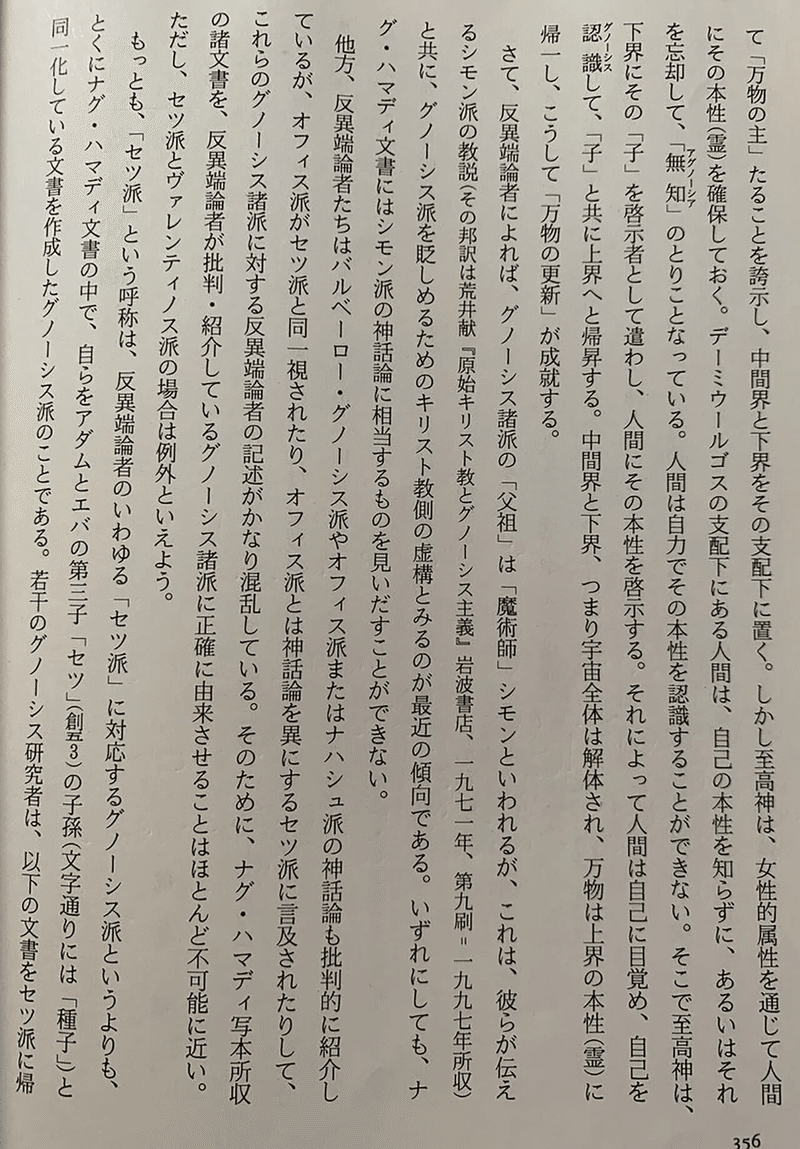 て「万物の主」たることを誇示し、中間界と下界をその支配下に置く。しかし至高神は、女性的属性を通じて人間
にその本性(霊)を確保しておく。デーミウールゴスの支配下にある人間は、自己の本性を知らずに、あるいはそれ
を忘却して、「無知アグノーシア」のとりことなっている。人間は自力でその本性を認識することができない。そこで至高神は、
下界にその「子」を啓示者として遣わし、人間にその本性を啓示する。それによって人間は自己に目覚め、自己を
認識グノーシスして、「子」と共に上界へと帰昇する。中間界と下界、つまり宇宙全体は解体され、万物は上界の本性(霊)に
帰一し、こうして「万物の更新」が成就する。
さて、反異端論者によれば、グノーシス諸派の「父祖」は「魔術師」シモンといわれるが、これは、彼らが伝え
るシモン派の教説(その邦訳は荒井献『原始キリスト教とグノーシス主義』岩波書店、一九七一年、第九刷=一九九七年所収)
と共に、グノーシス派を貶めるためのキリスト教側の虚構とみるのが最近の傾向である。いずれにしても、ナ
グ・ハマディ文書にはシモン派の神話論に相当するものを見いだすことができない。
他方、反異端論者たちはバルベーロー・グノーシス派やオフィス派またはナハシュ派の神話論も批判的に紹介し
ているが、オフィス派がセツ派と同一視されたり、オフィス派とは神話論を異にするセツ派に言及されたりして、
これらのグノーシス諸派に対する反異端論者の記述がかなり混乱している。そのために、ナグ・ハマディ写本所収
の諸文書を、反異端論者が批判・紹介しているグノーシス諸派に正確に由来させることはほとんど不可能に近い。
ただし、セツ派とヴァレンティノス派の場合は例外といえよう。
もっとも、「セツ派」という呼称は、反異端論者のいわゆる「セツ派」に対応するグノーシス派というよりも、
とくにナグ・ハマディ文書の中で、自らをアダムとエバの第三子「セツ」(創五3)の子孫(文字通りには「種子」)と
同一化している文書を作成したグノーシス派のことである。若干のグノーシス研究者は、以下の文書をセツ派に帰
356